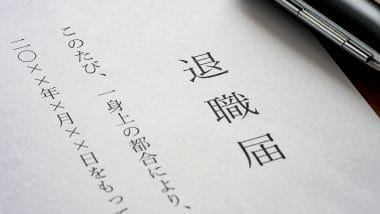 退職届
このたび、一身上の都合により、
二〇××年×月××日をもって